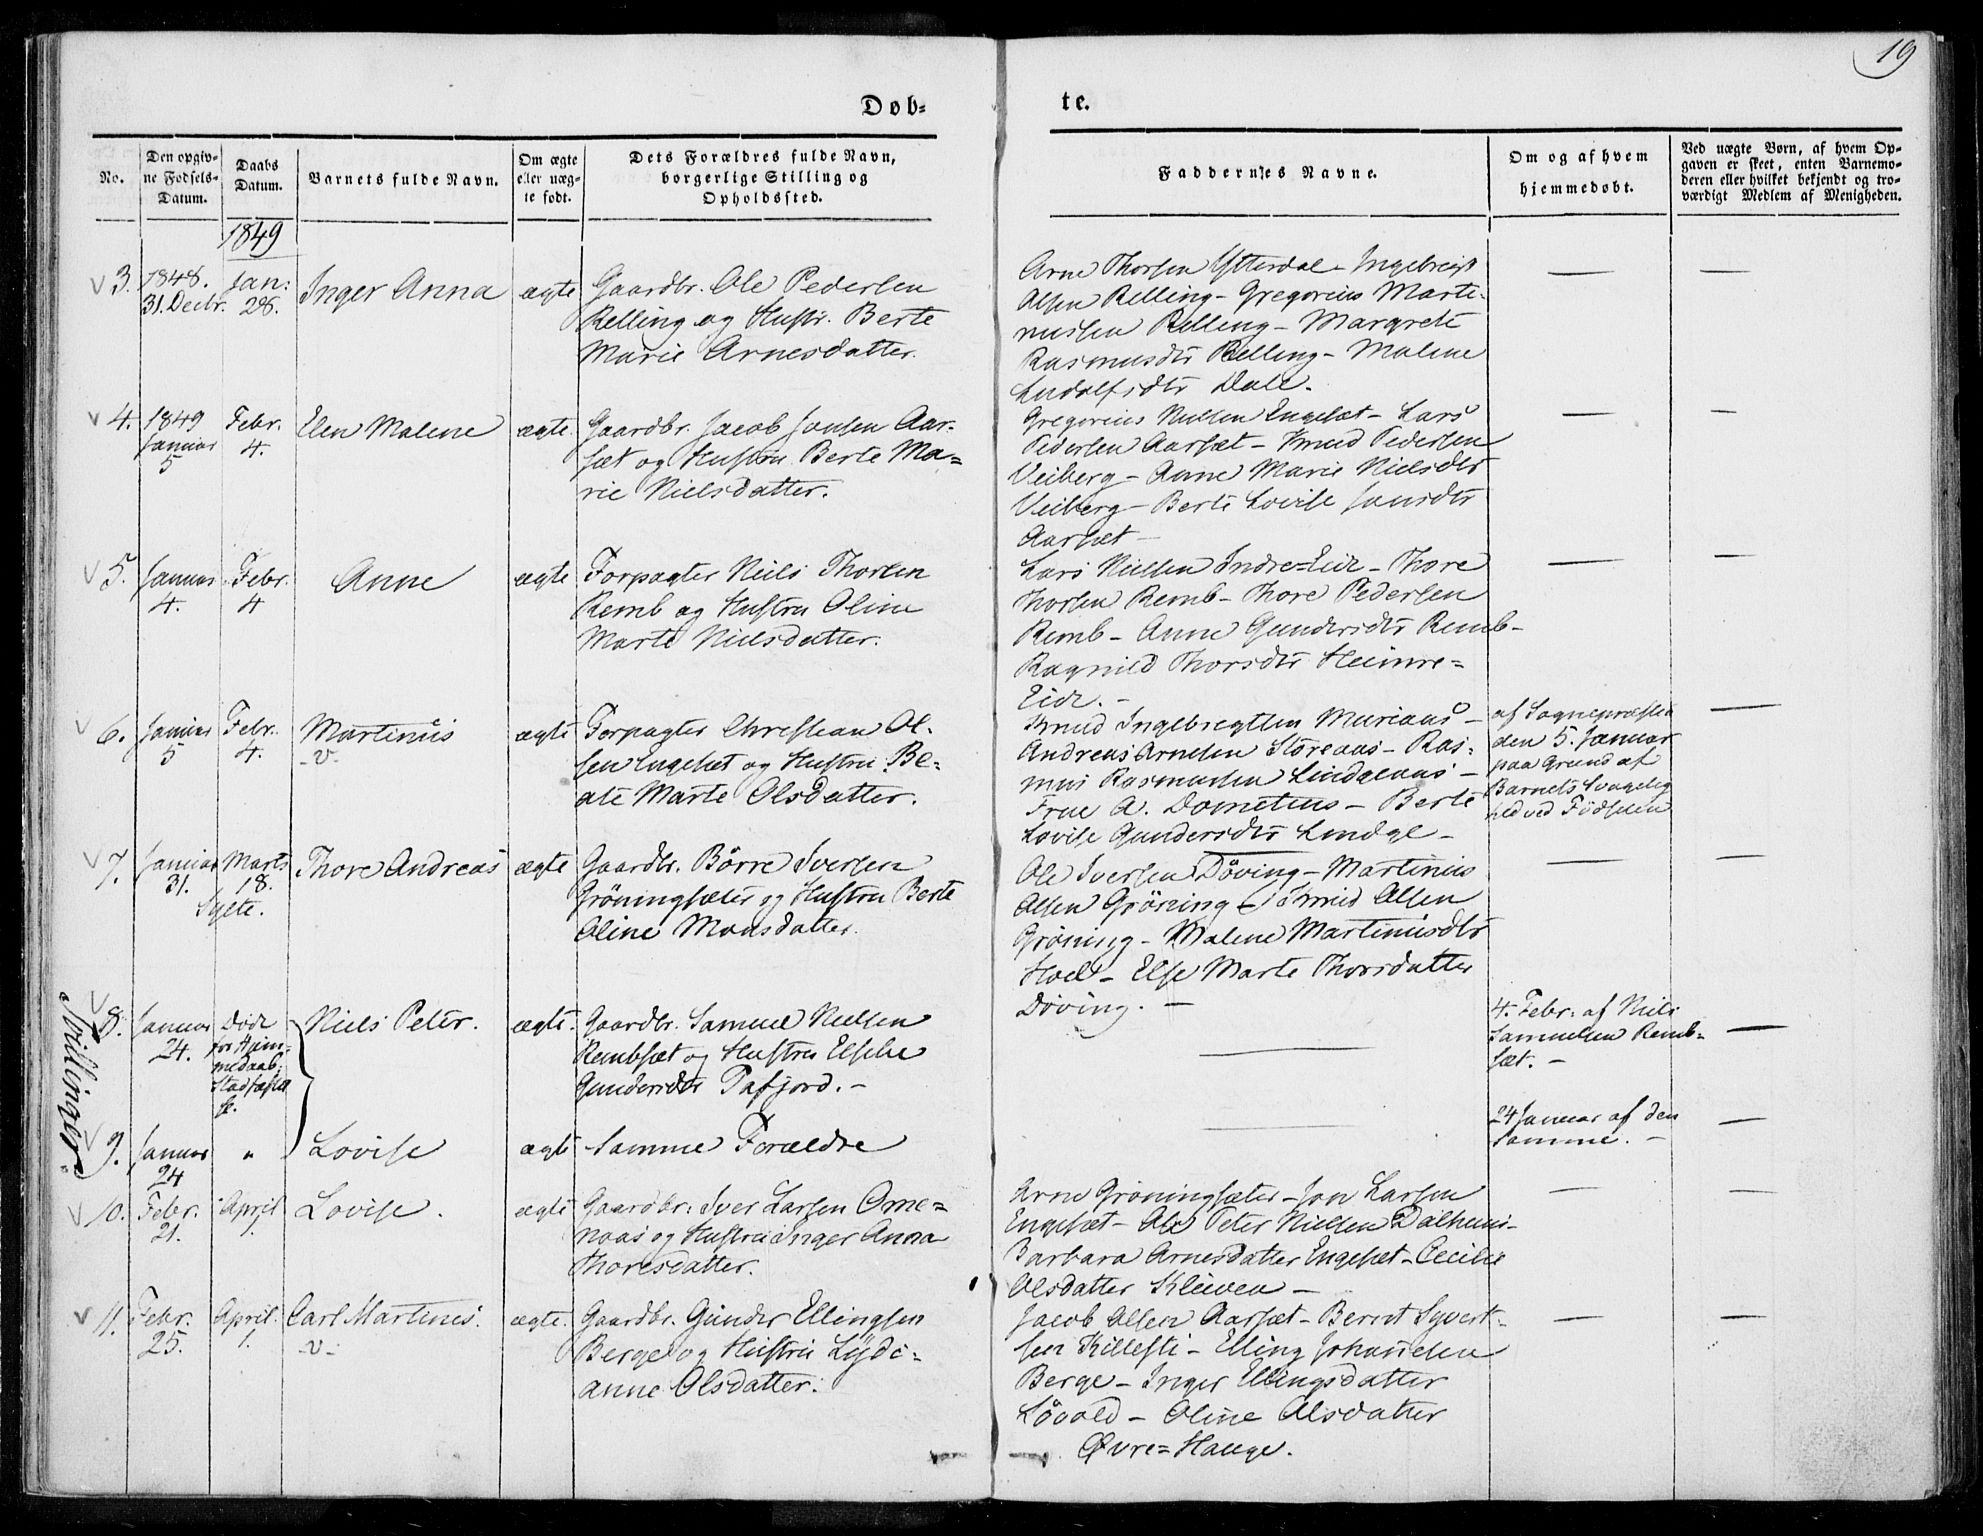 19
Døb=
te.
No.
Den opgiv=
ne Fødsels=
Datum.
Daabs
Datum.
Barnets fulde Navn.
Om ægte
eller uæg=
te født.
Dets Forældres fulde Navn,
borgerlige Stilling og
Opholdssted.
Faddernes Navne.
Om og af hvem
hjemmedøbt.
Ved uægte Børn, af hvem Op=
gaven er skeet, enten Barnemo=
deren eller hvilket bekjendt og tro=
værdigt Medlem af Menigheden.
1849
3.
1848.
31. Decbr.
Jan:
28.
Inger Anna
ægte
Gaardbr. Ole Pedersen
Relling og Hustr. Berte
Marie Arnesdatter.
Arne Thorsen Ytterdal - Ingebreigt
Olsen Relling - Gregorius Marti-
nussen Relling - Margrete
Rasmusdtr Relling - Malene
Ludolfsdtr Dale.
—
—
4.
1849
Januar
5
Febr.
4.
Elen Malene
ægte.
Gaardbr. Jacob Jonsen Aar-
sæt og Hustru Berte Ma=
rie Nielsdatter.
Gregorius Nielsen Engesæt - Lars
Pedersen Aarsæt - Knud Pedersen
Veiberg - Anne Marie Nielsdtr
Veiberg - Berte Lovise Jonsdtr
Aarsæt -
—
—
5.
Januar
4.
Febr.
4
Anne
ægte
Forpagter Niels Thorsen
Remb og Hustru Oline
Marte Nielsdatter.
Lars Nielsen Indre=Eide - Thore
Thorsen Remb - Thore Pedersen
Remb - Anne Gundersdtr Remb -
Ragnild Thorsdtr Heimre=
Eide. -
—
—
6.
Januar
5
Febr.
4.
Martinus
-v-
ægte
Forpagter Christian Ol-
sen Engeset og Hustru Be=
ate Marte Olsdatter.
Knud Ingebregtsen Muriaas -
Andreas Arnesen Storeaas - Ras=
mus Rasmussen Lindgeaas -
Frue A. Dometius - Berte
Lovise Gundersdtr Lindge -
af Sognepræsten
den 5. Januar
paa Grund af
Barnets Svagelig
hed ved Födselen
—
7.
Januar
31.
Marts
18.
Sylte.
Thore Andreas
ægte
Gaardbr. Börre Iversen
Gröningsæter og Hustru Berte
Oline Monsdatter.
Ole Iversen Döving - Martinus
Olsen Gröning - Knud Olsen
Gröning - Malene Martinusdtr
Hoel - Else Marte Thorsdatter
Döving. -
—
—
Tvillinger
8.
Januar
24.
Döde
for Hjem-
medaab:
Stadfæstel
se.
Niels Peter.
ægte.
Gaardbr. Samuel Nielsen
Rembsæt og Hustru Elsebe
Gundersdtr Tafjord. -
—
4. Febr: af Niels
Samuelsen Remb=
sæt. -
—
9.
Januar
24
"
Lovise
ægte
Samme Forældre
—
24 Januar af den
Samme. -
—
10.
Febr.
21.
April
1.
Lovise.
ægte
Gaardbr: Iver Larsen Ome=
noas og Hustru Inger Anna
Thoresdatter.
Arne Gröningsæter - Jon Larsen
Engeset - Ole Peter Nielsen Dalhuus -
Barbara Arnesdatter Engeset - Cecilie
Olsdatter Kleiven -
—
—
11.
Febr.
25.
April.
1.
Carl Martinus.
-v-
ægte.
Gaardbr. Gunder Ellingsen
Berge og Hustru Lydi=
anne Olsdatter.
Jacob Olsen Aarsæt - Bernt Syvert-
sen Killesti - Elling Johannesen
Berge - Inger Ellingsdatter
Lövold - Oline Olsdatter
Øvre=Hauge.
—
—